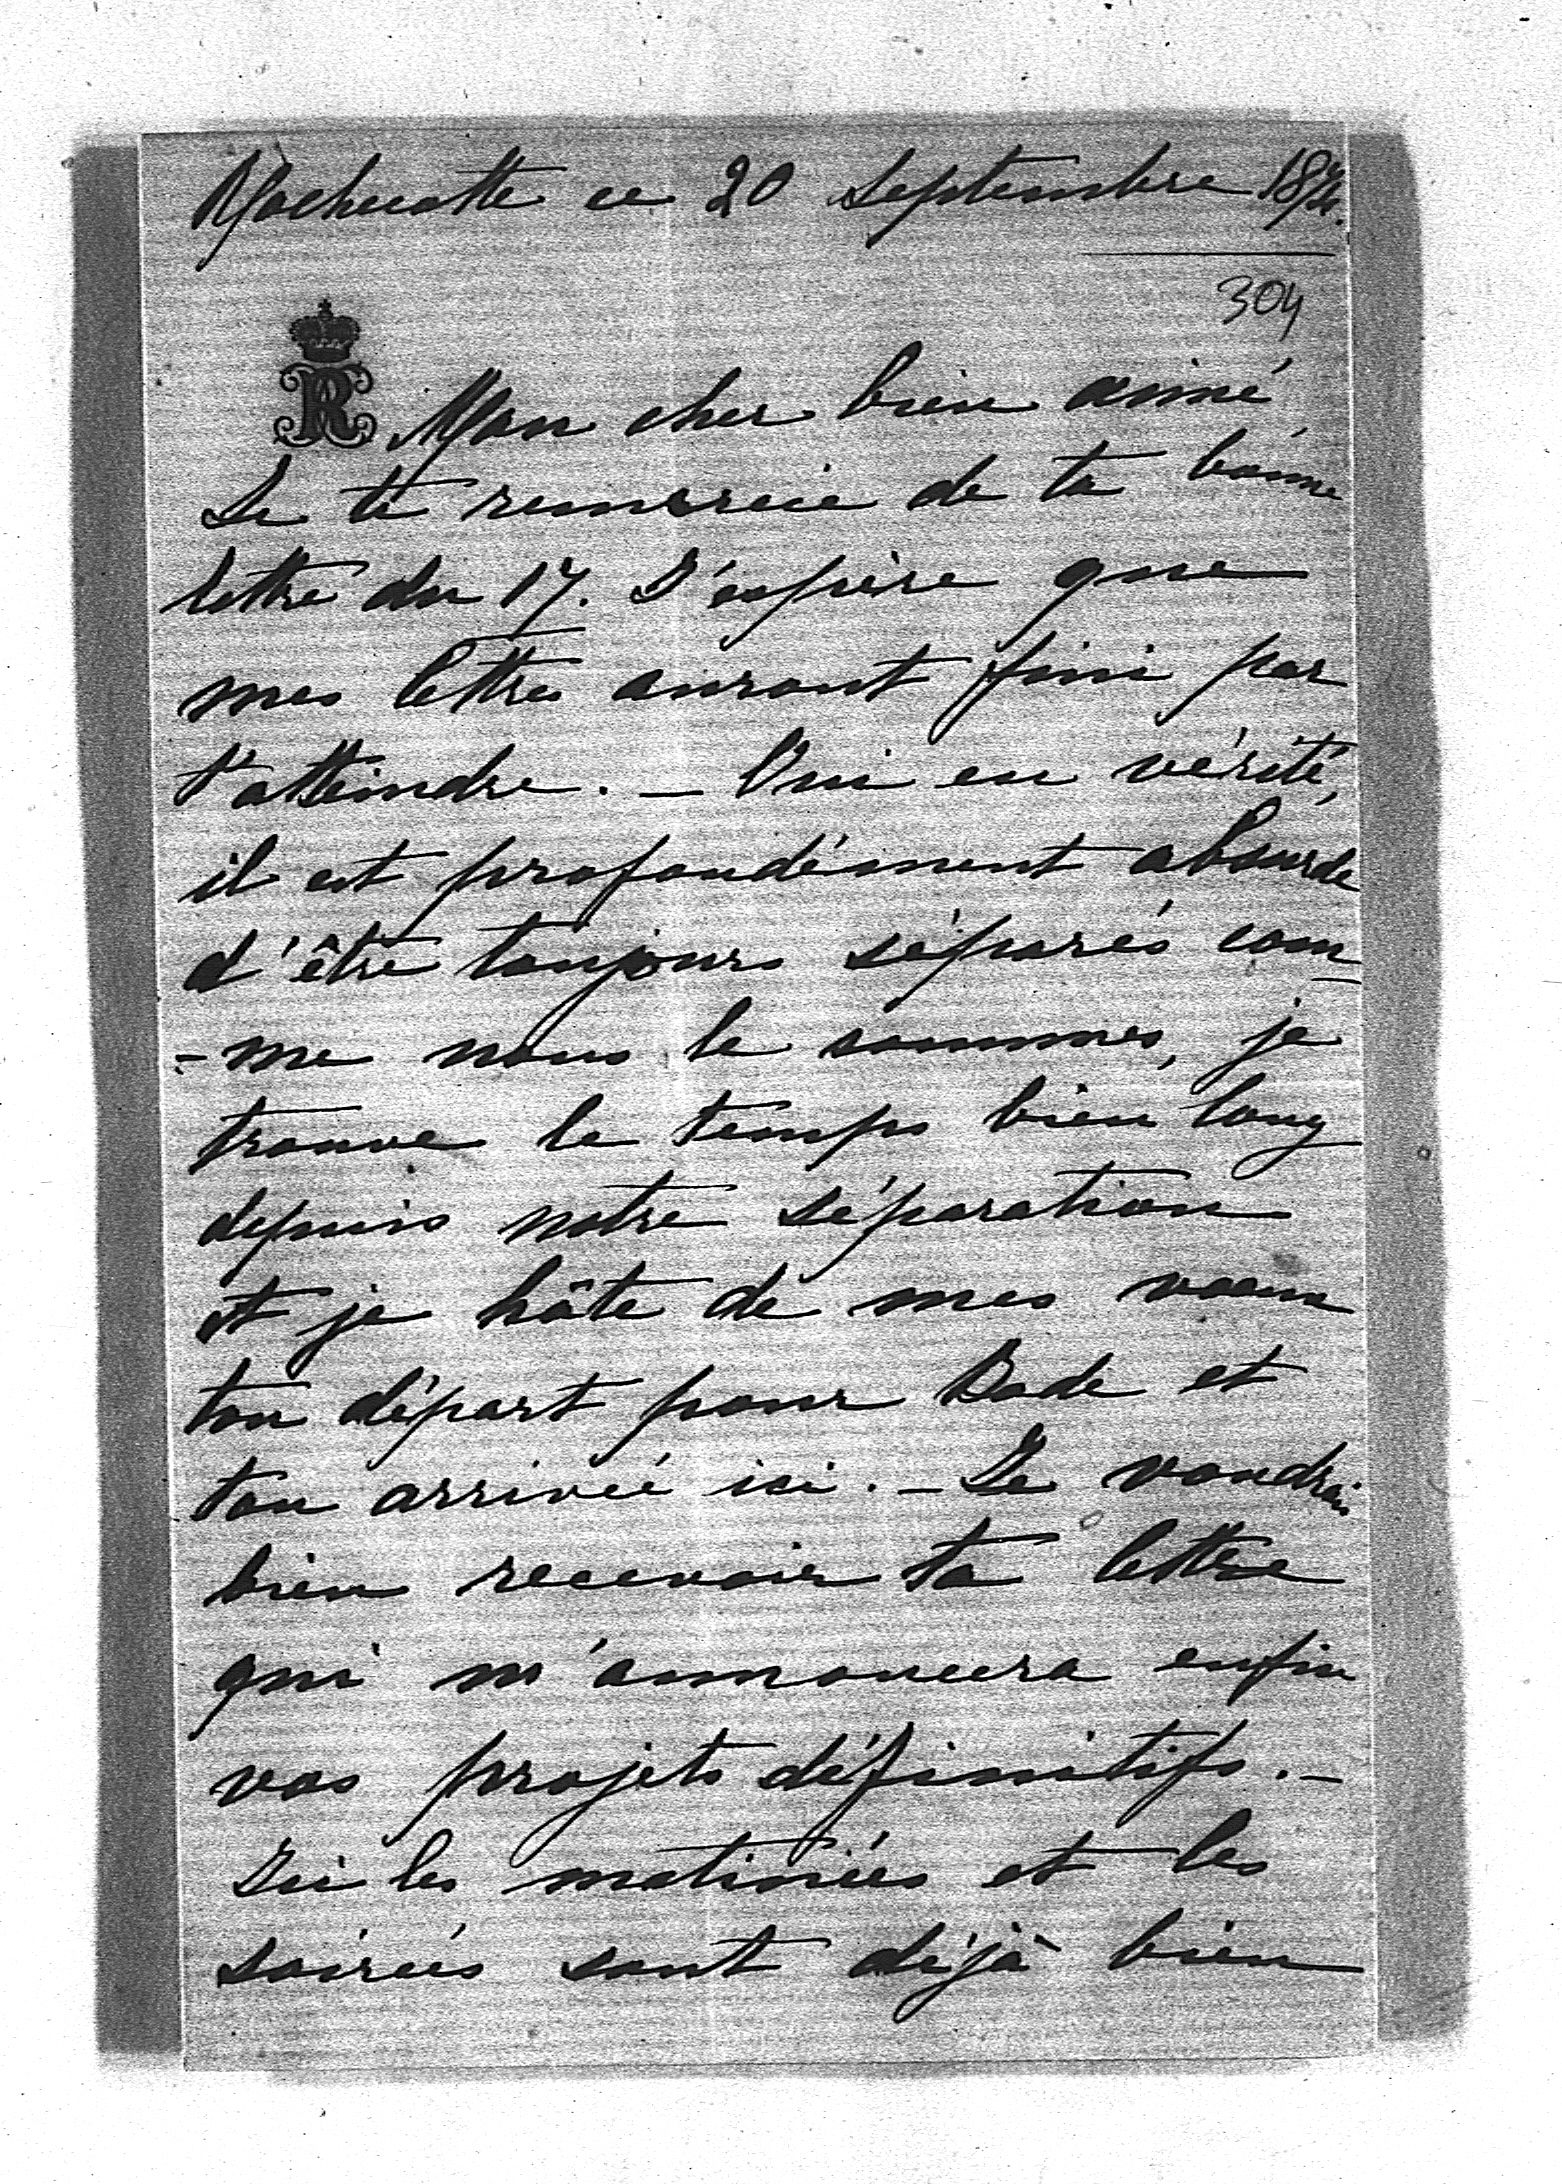 ce 20 Septembre
304
R
Mon cher bien aimé
Je te remercie de ta bonne
lettre du 17. J'espère que
mes lettres auront fini par
t'atteindre. — Oui en vérité,
il est profondément absurde
d'être toujours séparés com-
-me nous le sommes, je
trouve le temps bien long
depuis notre séparation
et je hâte de mes vœux
ton départ pour Bade et
ton arrivée ici. — Je voudrais
bien recevoir ta lettre
qui m'annoncera enfin
vos projets définitifs. —
Ici les matinées et les
soirées sont déjà bien